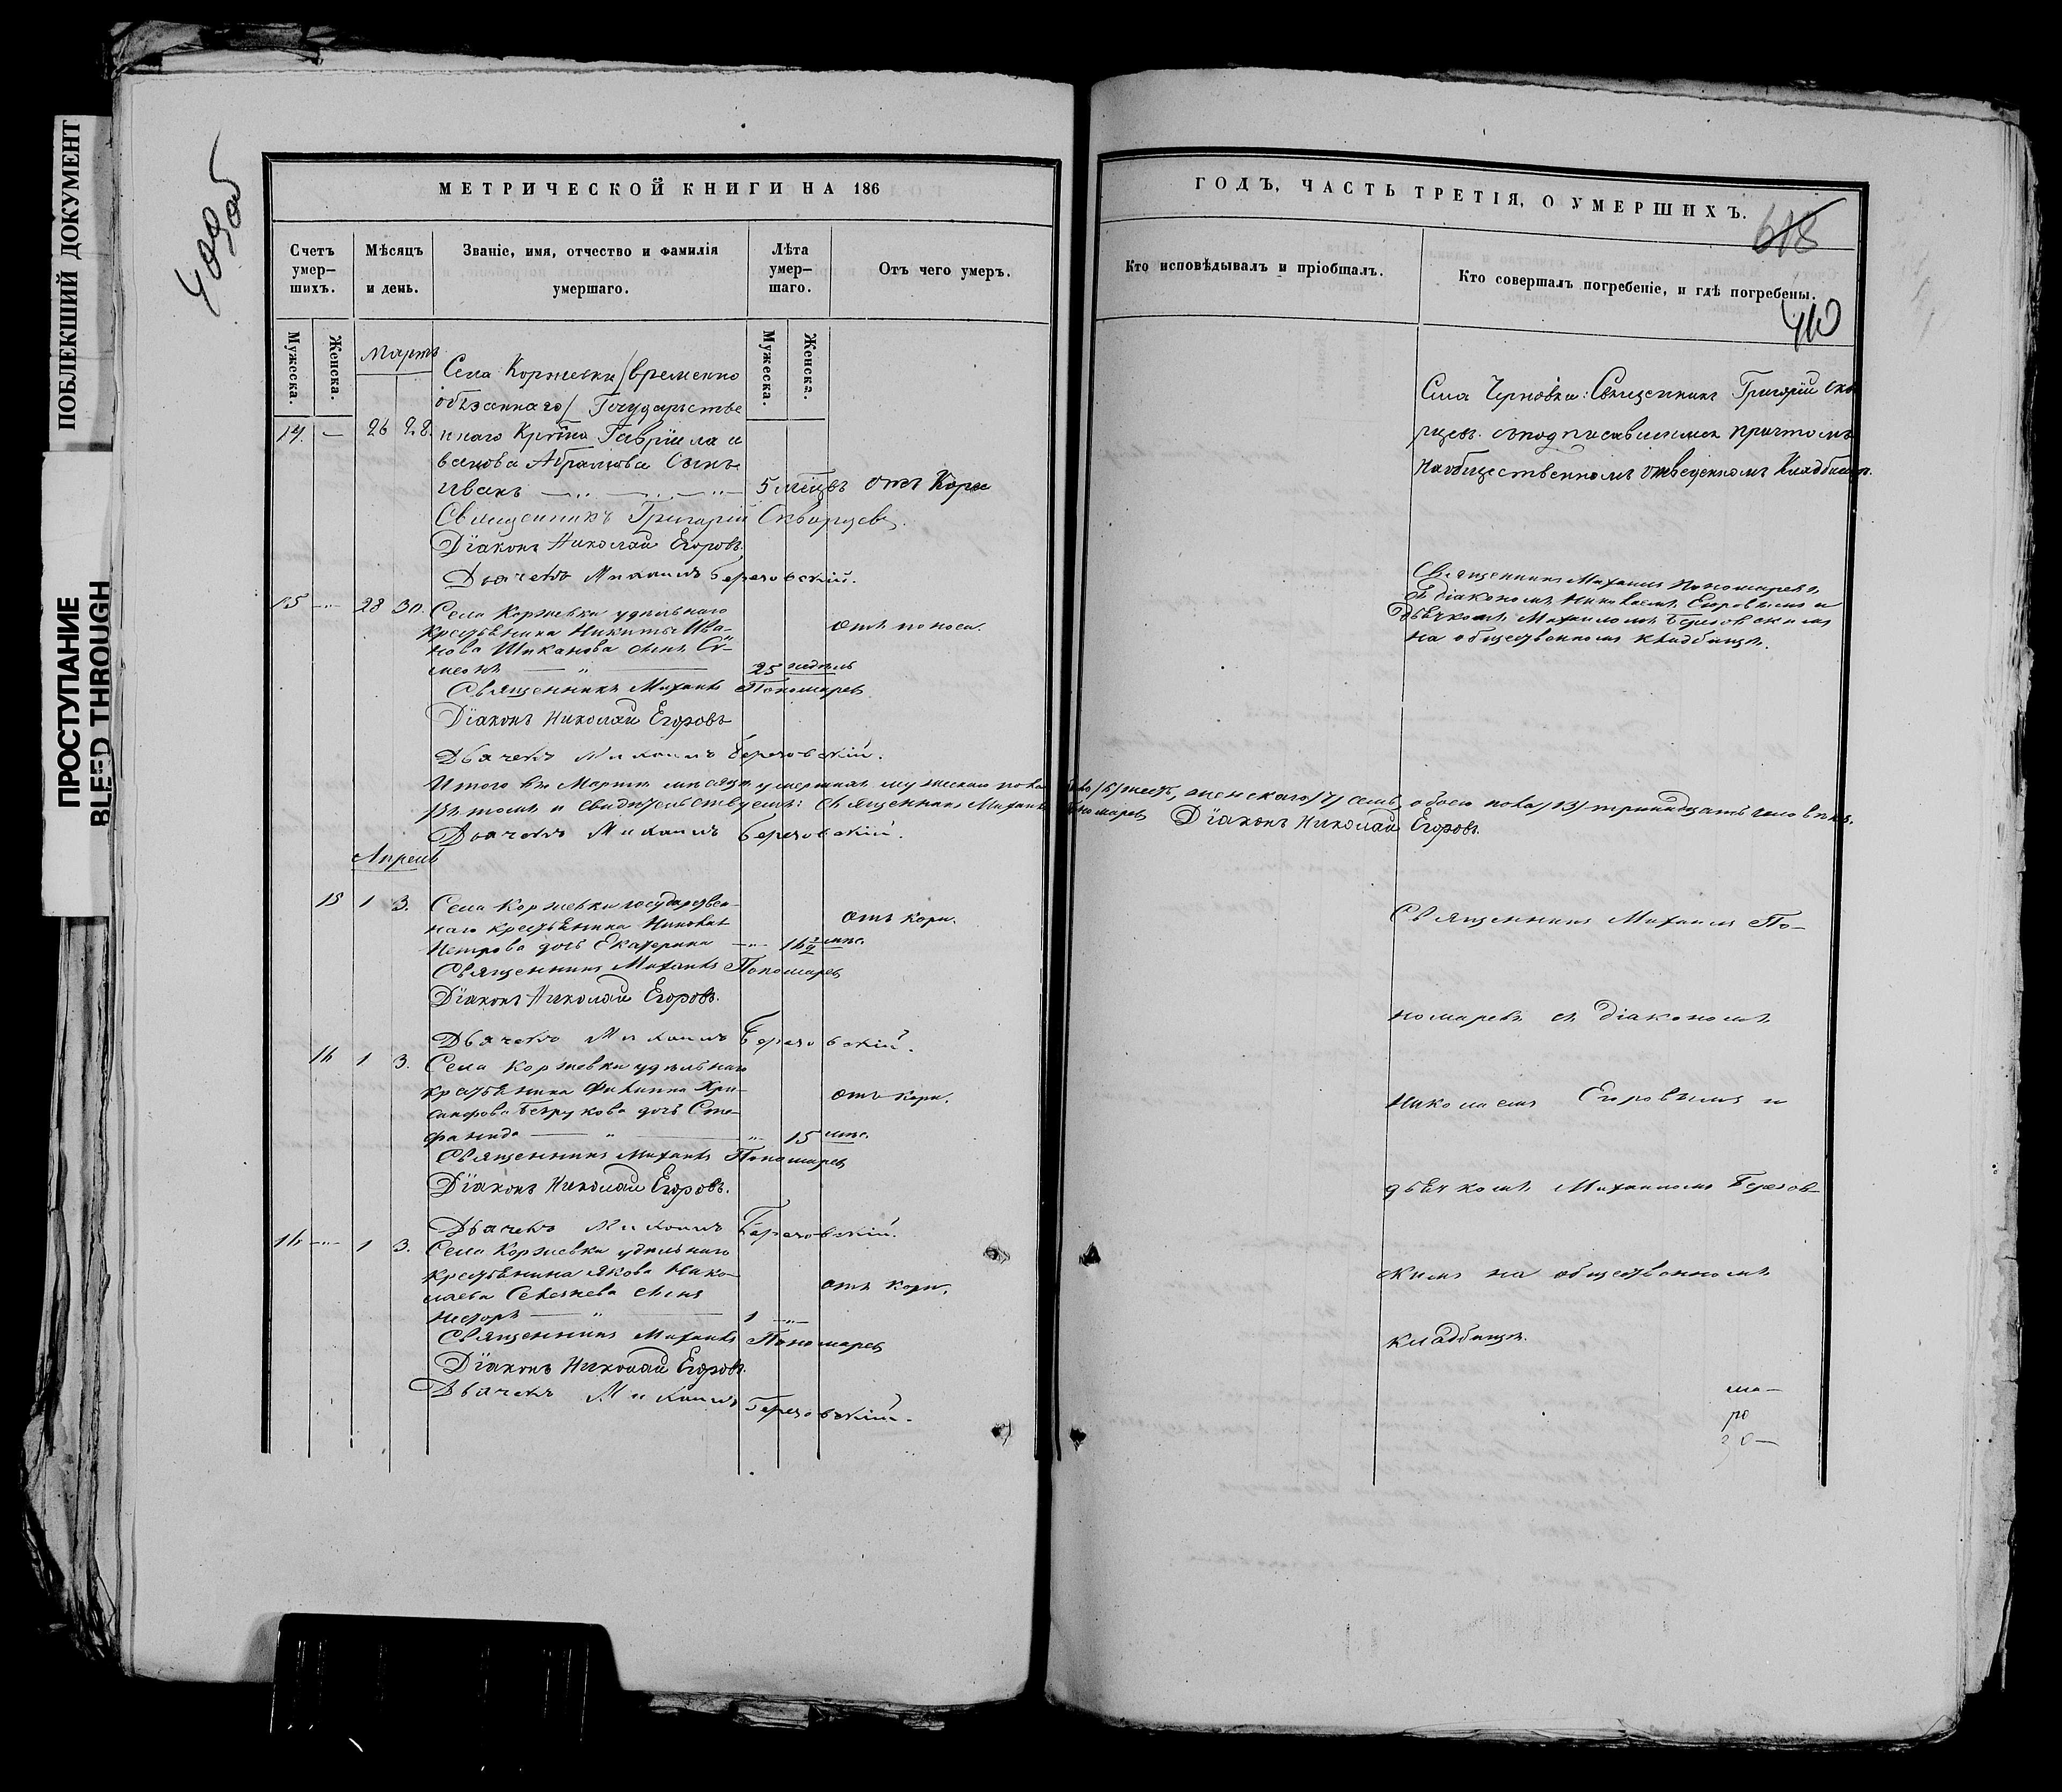 ПОБЛЕКШИЙ ДОКУМЕНТ
ПРОСТУПАНИЕ
BLEED THROUGH
МЕТРИЧЕСКОЙ КНИГИ НА 186
Счетъ умер–шихъ.
Мѣсяцъ и день.
Званіе, имя, отчество и фамилія умершаго.
Лѣта умер–шаго.
Отъ чего умеръ.
Мужеска.
Женска.
Мужеска.
Женска.
Мартъ
Села Коржевки /временно
обязаннаго/ Государстве
14. — 26 28. ннаго Гаврiила и
ванова Абрамова Сынъ
Иванъ 5 мѣцовъ отъ Кори
Священникъ Григорій Скворцовъ.
Діаконъ Николай Егоровъ
Дьячекъ Михаилъ Березовскій.
15 28 30. Села Коржевки удѣльнаго
крестьянина Никиты Ива–
отъ поноса.
нова Шиканова сынъ Сѵ–
меонъ 25 недѣль
Священникъ Михаилъ Пономаревъ
Діаконъ Николай Егоровъ
Дьячекъ Михаилъ Березовскій.
Итого въ Мартѣ мѣсяцѣ умершихъ мужескаго пола /6/ шесть, женскаго /7/ семь, обоего пола /13/ тринадцать человѣкъ.
Въ томъ и свидѣтельствуемъ: Священникъ Михаилъ Пономаревъ Діаконъ Николай Егоровъ.
Дьячекъ Михаилъ Березовскій.
Апрель
15 1 3. Села Коржевки государствен–
наго крестьянина Николая
отъ кори.
Петрова дочь Екатерина мѣс.
Священникъ Михаилъ Пономаревъ
Діаконъ Николай Егоровъ.
Дьячекъ Михаилъ Березовскій.
16 1 3. Села Коржевки удѣльнаго
крестьянина Филиппа Хри–
отъ кори.
санфова дочь Сте–
фанида 15 мѣс.
Священникъ Михаилъ Пономаревъ
Діаконъ Николай Егоровъ.
Дьячекъ Михаилъ Березовскій.
16 1 3. Села Коржевки удѣльнаго
крестьянина Якова Нико–
отъ кори.
лаева Селезнева сынъ
Несторъ 1
Священникъ Михаилъ Пономаревъ
Діаконъ Николай Егоровъ.
Дьячекъ Михаилъ Березовскій.
ГОДЪ, ЧАСТЬ ТРЕТІЯ, О УМЕРШИХЪ.
618
410
Кто исповѣдывалъ и пріобщалъ.
Кто совершалъ погребеніе, и гдѣ погребены.
Села Черновки: Священникъ Григорій Скво
рцовъ съ подписавшимся причтомъ
на общественномъ отведенномъ Кладбищѣ.
Священникъ Михаилъ Пономаревъ
съ діакономъ Николаемъ Егоровымъ и
дьячкомъ Михаиломъ Березовскимъ
на общественномъ кладбищѣ.
Священникъ Михаилъ По–
номаревъ съ діакономъ
Николаемъ Егоровымъ и
дьячкомъ Михаиломъ Березов–
скимъ на общественномъ
кладбищѣ.